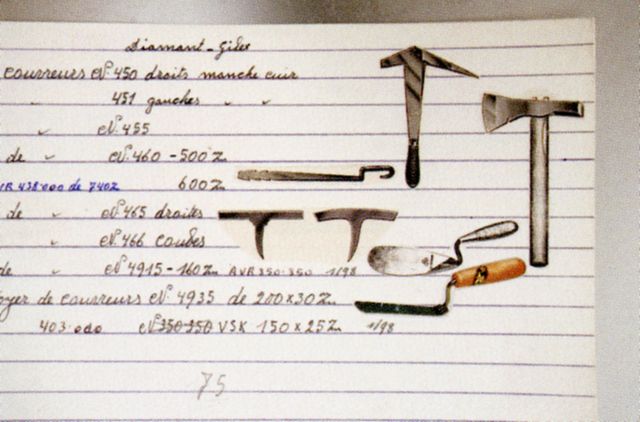 Diamant-Gides
couvreurs N° 450 droits manche cuir
" 451 gauches " "
" N° 455
de " N° 460 - 500 %
438.000 de 740% 600 %
de " N° 465 droites
" N° 466 coudes
de " N° 4915 - 160 % AVR 350.350 1/98
de couvreurs N° 4935 de 200 x 30 %
403.000 N° 350 350 VSK 150 x 25 % 1/98
75